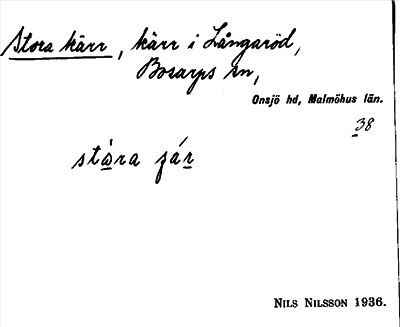 Stora kärr, kärr i Långaröd,
Bosarps sn,
Onsjö hd, Malmöhus län.
38
stàra
NILS NILSSON 1936.